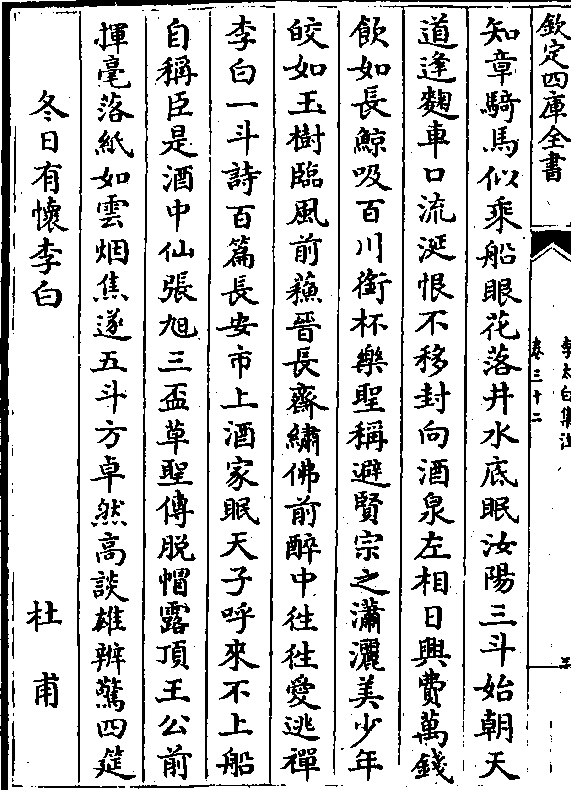 欽定四庫全書
李太白集注
卷三十二
知章騎馬似乘船眼花落井水底眠汝陽三斗始朝天
道逢麴車口流涎恨不移封向酒泉左相日興費萬錢
飲如長鯨吸百川銜杯樂聖稱避賢宗之瀟灑美少年
皎如玉樹臨風前蘇晉長齋繡佛前醉中往往愛逃禪
李白一斗詩百篇長安市上酒家眠天子呼來不上船
自稱臣是酒中仙張旭三盃草聖傳脫帽露頂王公前
揮毫落紙如雲烟焦遂五斗方卓然高談雄辨驚四筵
冬日有懷李白　杜甫